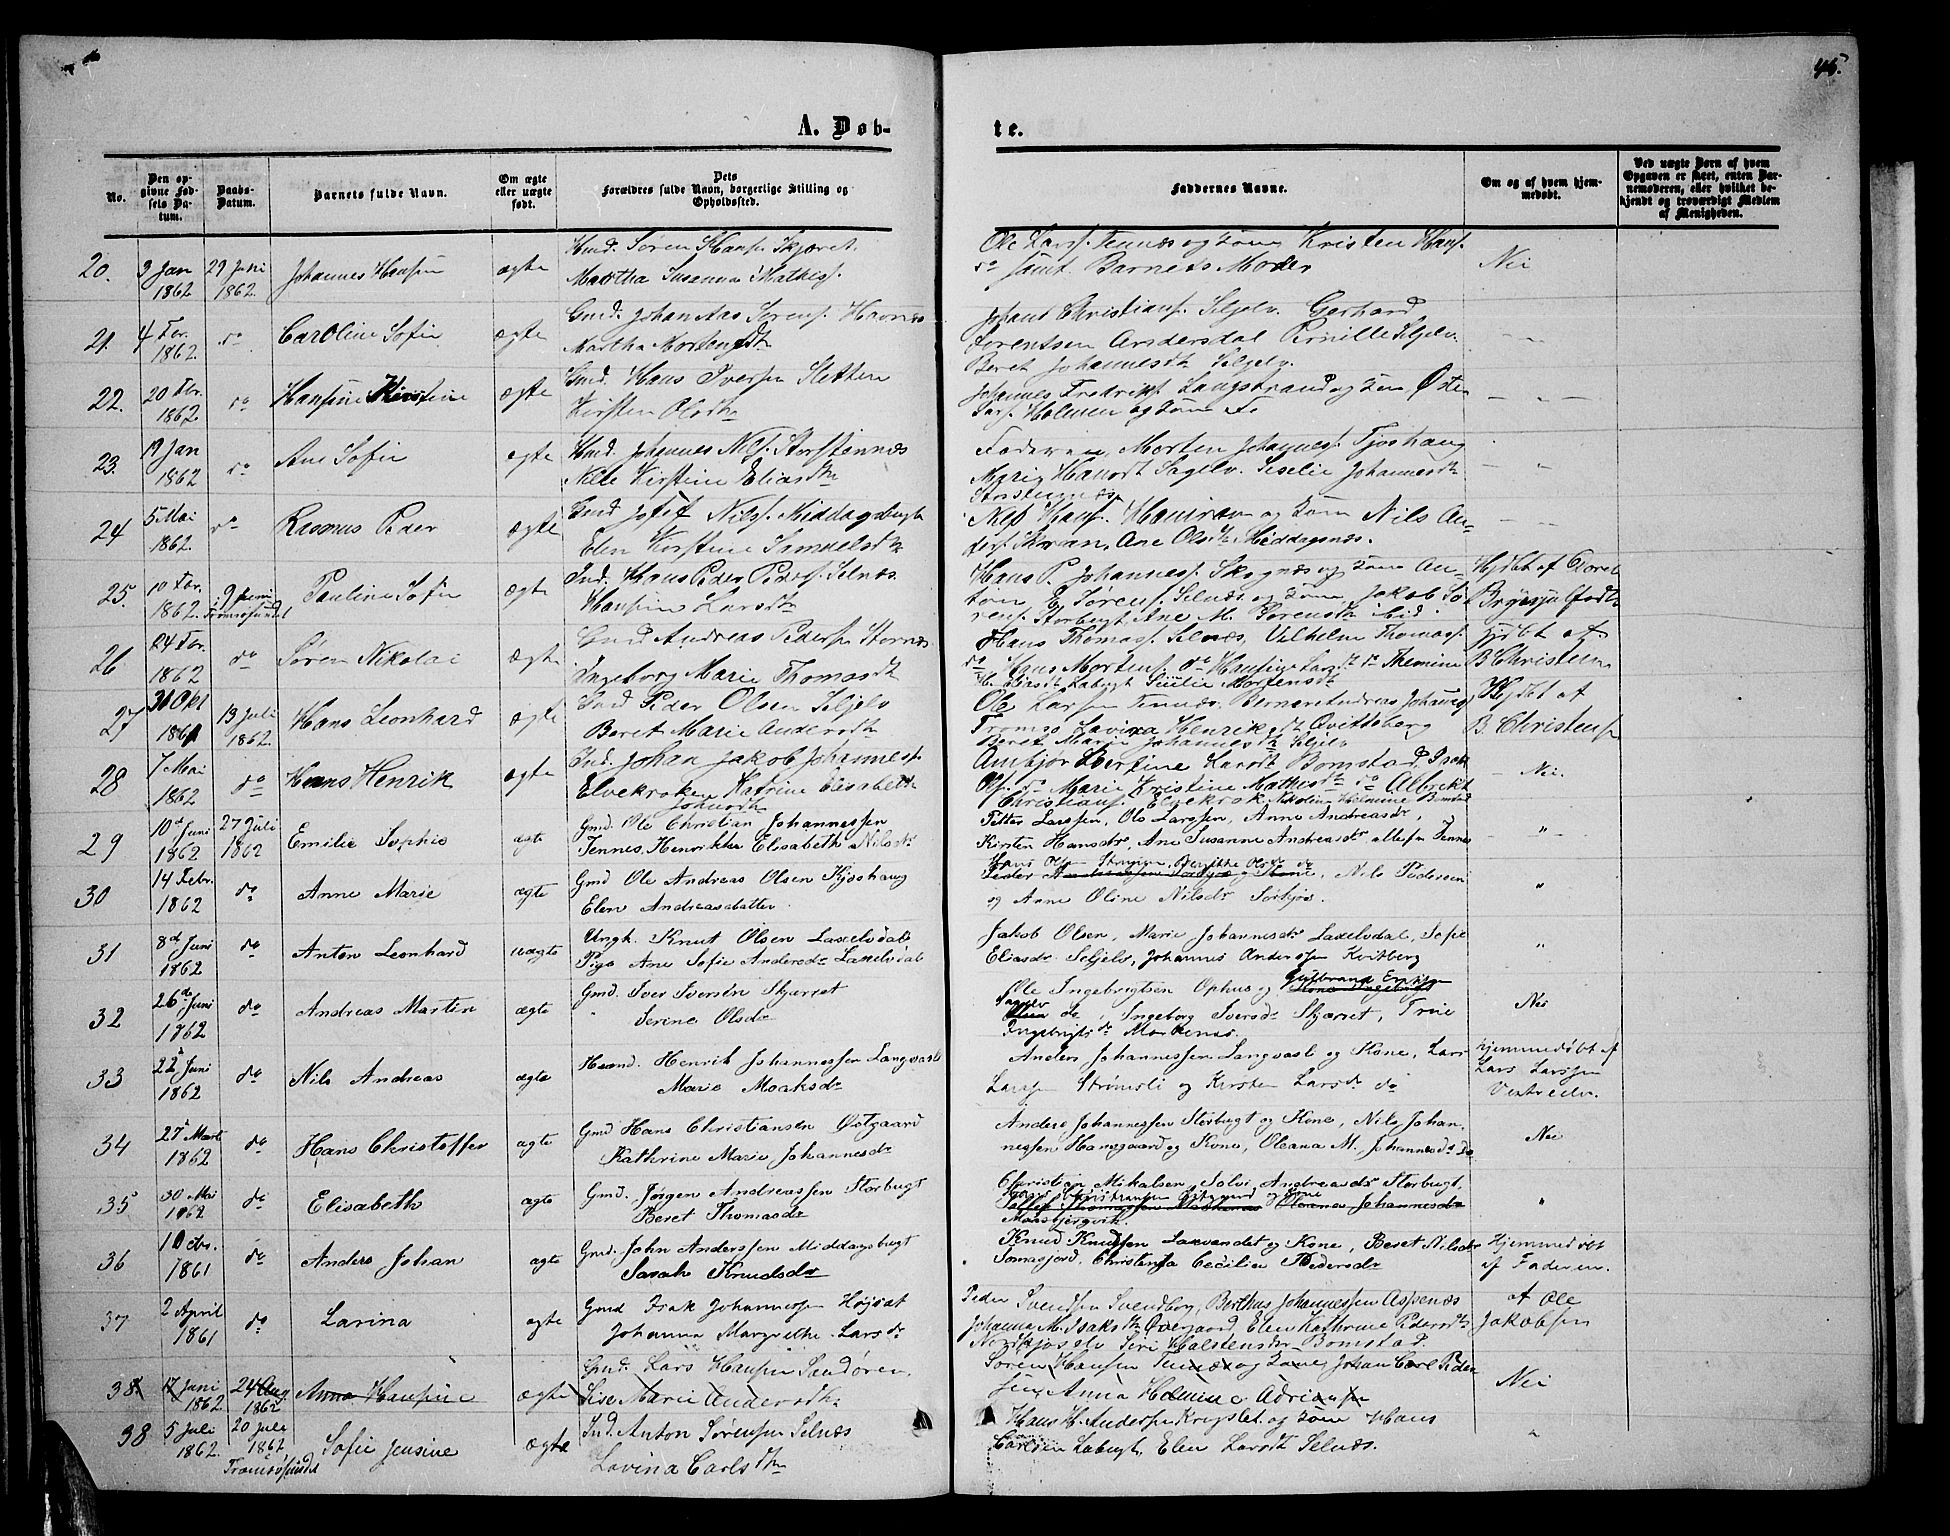 45.
A. Døb-
te.
No.
Den op-
givne Fød-
sels Da-
tum.
Daabs-
Datum.
Barnets fulde Navn.
Om ægte
eller uægte
født.
Dets
Forældres fulde Navn, borgerlige Stilling og
Opholdssted.
Faddernes Navne.
Om og af hvem hjem-
medøbt.
Ved uægte Børn af hvem
Opgaven er skeet, enten Bar-
nemoderen, eller hvilket be-
kjendt og troværdigt Medlem
af Menigheden.
20. 9 Jan 1862 29 Juni 1862. Johannes Hansen ægte
Hmd. Søren Hansen Skjæret
Martha Susanna Mathisd.
Ole Larss. Tennes og Kone Kristen Hans.
do samt Barnets Moder
Nei
21. 4 Febr. 1862. do Caroline Sofie ægte
Gmd. Johan Aas Sørens. Havnæs
Martha Mortensdtr
Johans Christians. Seljelv. Gerhard
Lorentsen Andersdal Pernille Seljelv.
Beret Johannesdtr Seljelv.
22. 20 Febr. 1862. do Hansine Kirstine ægte
Gmd. Hans Iversen Sletten
Kirsten Olsdtr
Johannes Fredriks. Langstrand og Kone
Lars. Holmen og Kone
23. 19 Jan 1862 do Ane Sofie ægte
Hmd. Johannes Nils. Storstennæs
Nille Kirstine Eliasdtr
Faderen, Morten Johannes. Fjoshaug
Marig Hansdt Sagelv. Seselie Johannesdtr
Storstennæs
24 5 Mai 1862. do Rasmus Peder ægte
Ind Josef Nilss. Middagsbugt
Elen Kirstine Samuelsdtr
Nels Hans. og Kone Nils An-
ders. Ane Olsdtr Middagsnæs.
25. 10 Febr. 1862. 9 Juni Tromsøsundet Pauline Sofie ægte
Ind. Hans Peder Peders. Selnæs
Hansine Larsdtr
Hans P. Johannes. Skognæs og Kone An-
ton E. Sørens. Selnæs og Kone, Jakob Sø-
rens. Storbugt Ane M. Sørensdtr ibid
Hjdbt af
26 24 Febr. 1862 do Søren Nikolai ægte
Gmd Andreas Pedersen Stornæs
Ingeborg Marie Thomasdtr
Hans Thomass. Selnæs, Vilhelm Thomass.
do Hans Mortens. do Hansine Larsdtr do
Hjdbt af
B Christensen
27 31 Okt 1861 13 Juli 1862. Hans Leonhard ægte
Ind Peder Olsen Seljelv
Beret Marie Andersdtr
Ole Larsen Tennæs. Andreas Johannes.
Tromsø Lavina Henriksdtr Qvitteberg
Beret Marie Johannesdtr Seljelv
Hjdbt af
B. Christensen
28 7 Mai 1862 do Hans Henrik ægte
Ind. Johan Jakob Johannes.
Elvekroken Katrine Elisabeth
Johnsdtr
Ambjør Bertine Larsdt Bomstad, Isak
Ols. do Marie Kristine Mathisdtr do Albrekt
Christians. Elvekrok
Nei.
29 10d Juni 1862 27 Juli 1862 Emilie Sophie ægte
Gmd. Ole Christian Johannessen
Tennes, Henrikke Elisabeth Nilsdr
Petter Larssen, Ole Larssen, Anne Andreasdr,
Kirsten Hansdr, Ane Susanne Andreasdr, alle fra Tennes
"
30 14 Febr. 1862 do Anne Marie ægte
Gmd Ole Andreas Olsen Kjøshaug
Elen Andreasdatter.
Peder Andreassen Sørkjos og Kone, Nils Pedersen
og Anne Oline Nilsdr Sørkjos.
"
31 8d Juni 1862 do Anton Leonhard uægte
Ungk. Knut Olsen Laxelvdal
Pige Ane Sofie Andersdr Laxelvdal
Jakob Olsen, Marie Johannesdr Laxelvdal, Sofie
Eliasdr Seljelv, Johannes Anderssen Kvitberg
"
32 26de Juni 1862 do Andreas Martin ægte
Gmd. Iver Iversen Skjæret
Serine Olsdr
Ole Ingebrigtsen Ophus og Guttorm
Sagelv do, Ingeborg Iversdr Skjæret, Trine
Ingebrigtsdr Markenæs.
Nei
33 22d Juni 1862 do Nils Andreas ægte
Huusmd. Henrik Johannessen Langvasli
Marie Moaksdr
Anders Johannessen Langvasli og Kone, Lars
Larsen Strømsli og Kirsten Larsdr do
hjemmedøbt af
Lars Larssen
34 27d Marts 1862 do Hans Christoffer ægte
Gmd Hans Christiansen Østgaard
Katherine Marie Johannesdr
Anders Johannessen Storbugt og Kone, Nils Johan-
nessen Hamsgaard og Kone, Oleana M. Johannesdr do
Nei
35 30 Mai 1862 do Elisabeth ægte
Gmd. Jørgen Andreassen Storbugt
Beret Thomasdr
Christian Mikalsen, Solvi Andreasdr Storbugt,
Hans Christiansen Østgaard og Kone
Thomassen Markenæs Oleana Johannesdr
Maasbjergvik.
"
36 1 Octbr. 1861 do Anders Johan ægte
Gmd. John Anderssen Middagsbugt
Sarah Knudsdr
Knud Knudsen Laxvandet og Kone, Beret Nilsdr
Lomasjord, Christensa Cecilie Pedersdr
Hjemmedøbt
af Faderen.
37 2 April 1861 do Larina ægte
Gmd Isak Johannessen Højset
Johanna Margrethe Larsdr
Peder Svendsen Svendborg, Berthus Johannessen Aspenæs
Johanna M. Isaksdtr Øvergaard, Elen Kathrine Pedersdtr
Nordkjoselv Siri Halstensdtr Bomstad.
af Ole
Jakobsen
38 17 Juni 1862 24 Aug 1862 Anna Hansine ægte
Gmd. Lars Hansen Sandøren
Lise Marie Andersdtr
Søren Hansen Tennæs og Kone, Johan Carl Peder
sen, Anna Helmine Adriansen
Nei
38 5 Juli 1862. 20 Juli 1862 Tromsøsundet Sofie Jensine ægte
Ind. Anton Sørensen Selnæs
Lovina Carlsdtr
Hans H. Andersen og Kone Hans
Carlsen Labugt, Elen Larsdt Selnæs.
"